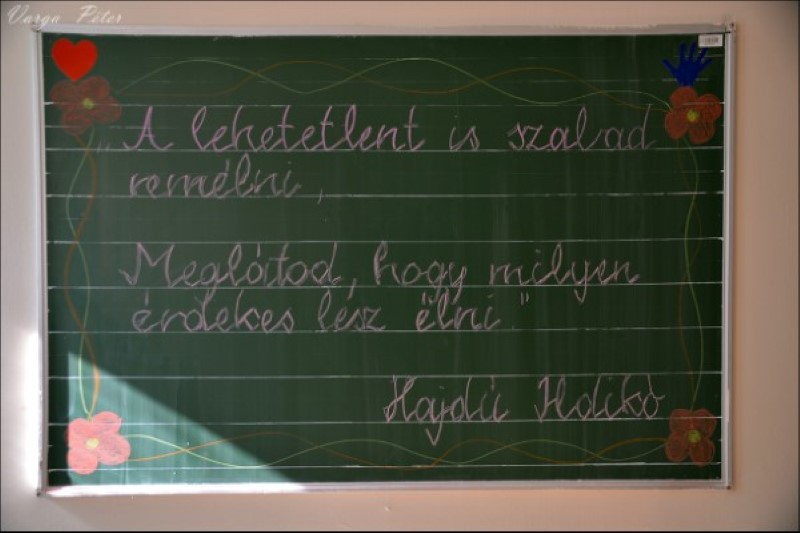 Varga Péter
„A lehetetlent is szabad
remélni,
Meglátod, hogy milyen
érdekes lész élni"
Hajdú Ildikó